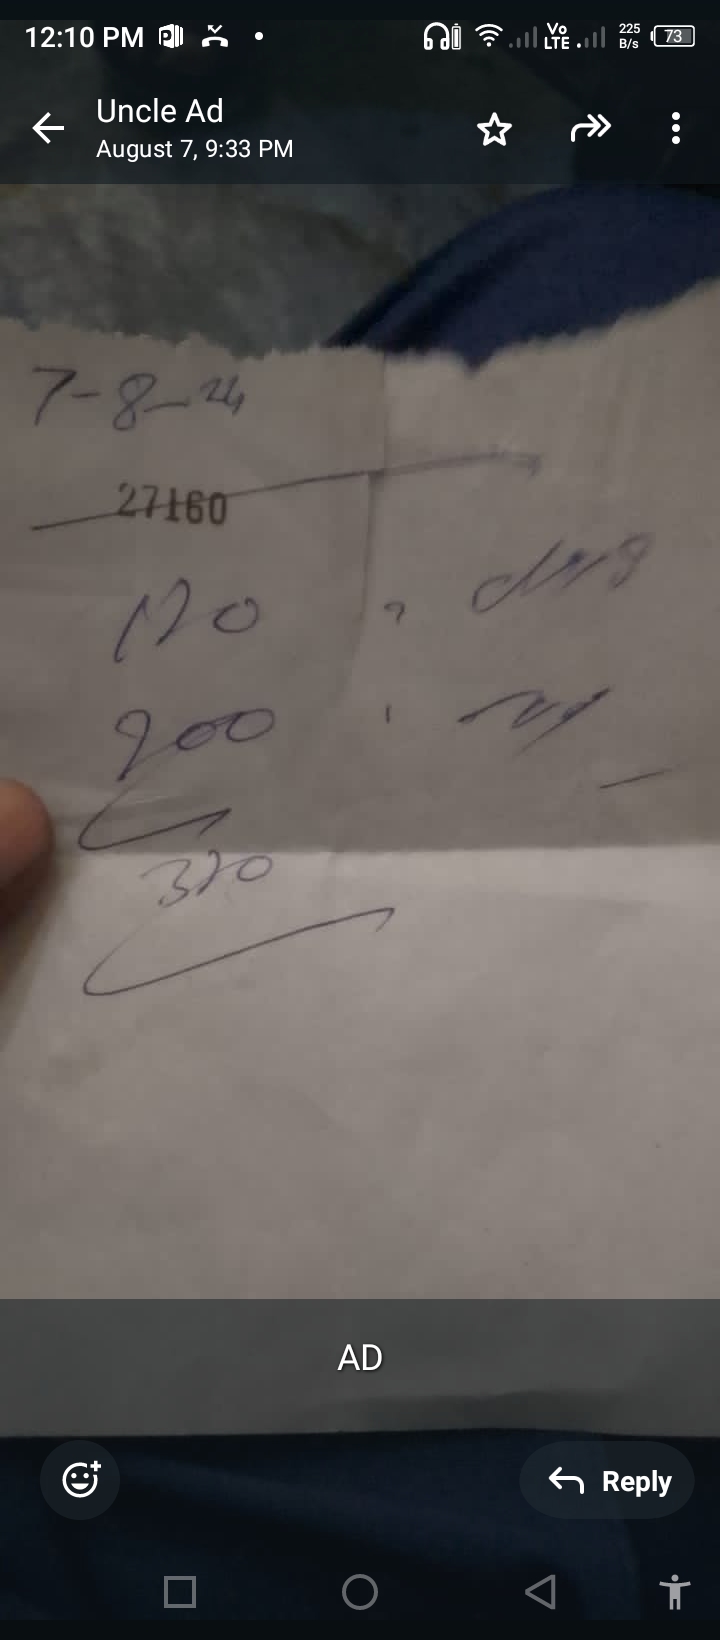 12:10 PM Vo LTE 225 B/s 73
Uncle Ad
August 7, 9:33 PM
7-8-24
27160
120
200
320
AD
Reply